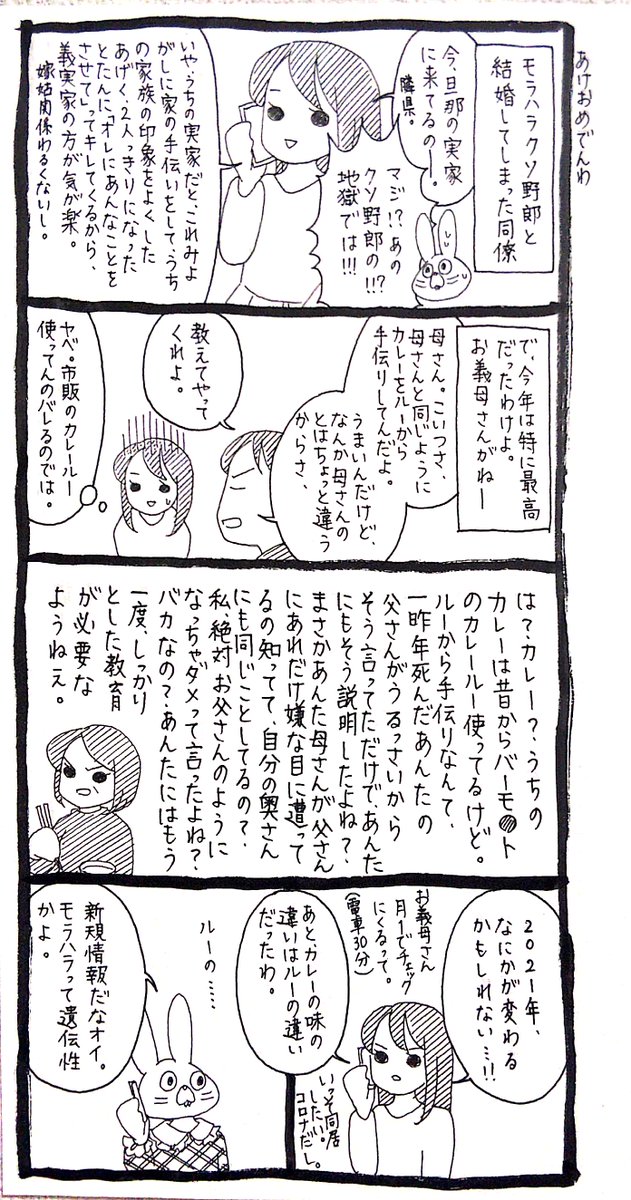 あけおめでんわ
モラハラクソ野郎と
結婚してしまった同僚
今、旦那の実家
に来てるのー。
隣県。
マジ!?あの
クソ野郎の!!?
地獄では!!!
いや、うちの実家だと、これみよ
がしに家の手伝いをして、うち
の家族の印象をよくした
あげく、2人っきりになった
とたんに、「オレにあんなことを
させて」ってキレてくるから、
義実家の方が気が楽。
嫁姑関係わるくないし。
で、今年は特に最高
だったわけよ。
お義母さんがねー
母さん。こいつさ、
母さんと同じように
カレーをルーから
手作りしてんだよ。
うまいんだけど、
なんか母さんの
とはちょっと違う
からさ、
教えてやって
くれよ。
ヤベ。市販のカレールー
使ってんのバレるのでは。
は?カレー?うちの
カレーは昔からバーモ●ト
のカレールー使ってるけど。
ルーから手作りなんて、
一昨年死んだあんたの
父さんがうるっさいから
そう言ってただけで、あんた
にもそう説明したよね?
まさかあんた母さんが父さん
にあれだけ嫌な目に遭って
るの知ってて、自分の奥さん
にも同じことしてるの?
私絶対お父さんのように
なっちゃダメって言ったよね?
バカなの?あんたにはもう
一度、しっかり
とした教育
が必要な
ようねえ。
2021年、
なにかが変わる
かもしれない…!!
お義母さん
月1でチェック
にくるって。
(電車30分)
あと、カレーの味の
違いはルーの違い
だったわ。
いっそ同居
したい。
コロナだし。
ルーの……
新規情報だなオイ。
モラハラって遺伝性
かよ。